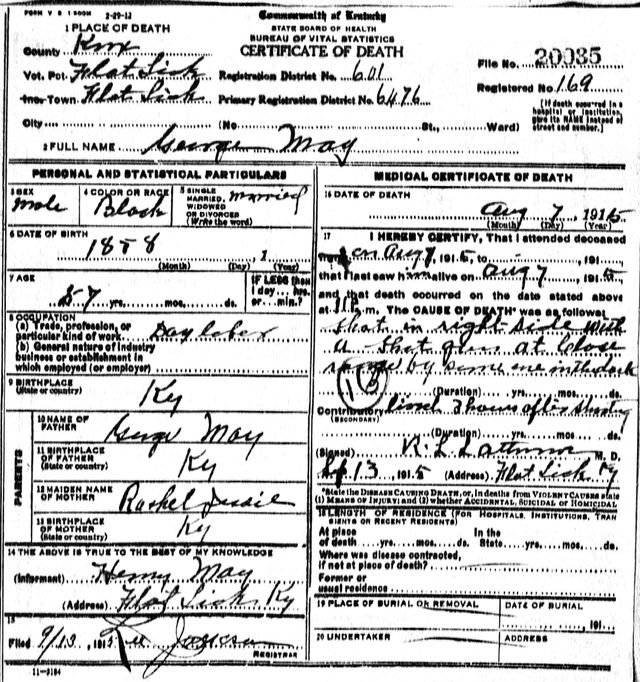 FORM V S 1 500M 2-29-12
Commonwealth of Kentucky
STATE BOARD OF HEALTH
BUREAU OF VITAL STATISTICS
CERTIFICATE OF DEATH
1 PLACE OF DEATH
County Knox
Vot. Pct. Flat Lick Registration District No. 601
Inc. Town Flat Lick Primary Registration District No. 6476
File No. 20035
Registered No. 169
[If death occurred in a
hospital or institution,
give its NAME instead of
street and number.]
City (No St., Ward)
2 FULL NAME George May
PERSONAL AND STATISTICAL PARTICULARS
3 SEX
Male
4 COLOR OR RACE
Black
5 SINGLE
MARRIED,
WIDOWED
OR DIVORCED
(Write the word)
Married
6 DATE OF BIRTH
1858, 1
(Month) (Day) (Year)
7 AGE
57 yrs. mos. ds.
IF LESS than
1 day... hrs.
or... min.?
8 OCCUPATION
(a) Trade, profession, or
particular kind of work Day labor
(b) General nature of industry
business or establishment in
which employed (or employer)
9 BIRTHPLACE
(State or country) Ky
PARENTS
10 NAME OF
FATHER George May
11 BIRTHPLACE
OF FATHER
(State or country) Ky
12 MAIDEN NAME
OF MOTHER Rachel
13 BIRTHPLACE
OF MOTHER
(State or country) Ky
14 THE ABOVE IS TRUE TO THE BEST OF MY KNOWLEDGE
(Informant) Henry May
(Address) Flat Lick Ky
15
Filed 9/13, 1915 Jackson
REGISTRAR
11-3184
MEDICAL CERTIFICATE OF DEATH
16 DATE OF DEATH
Aug 7, 1915
(Month) (Day) (Year)
17 I HEREBY CERTIFY, That I attended deceased
on Aug 7, 1915, to 191
that I last saw him alive on Aug 7 1915
and that death occurred on the date stated above
at m. The CAUSE OF DEATH* was as follows
Shot in right side with
a Shot gun at Close
range by some one in the dark
(Duration) yrs. mos. ds.
Contributory lived 3 hours after shooting
(SECONDARY)
(Duration) yrs. mos. ds.
(Signed) M. D.
13, 1915 (Address) Flat Lick Ky
*State the DISEASE CAUSING DEATH, or, in deaths from VIOLENT CAUSES state
(1) MEANS OF INJURY; and (2) whether ACCIDENTAL, SUICIDAL or HOMICIDAL
18 LENGTH OF RESIDENCE (FOR HOSPITALS, INSTITUTIONS, TRAN
SIENTS OR RECENT RESIDENTS)
At place In the
of death yrs. mos. ds. State yrs. mos. ds.
Where was disease contracted,
if not at place of death?
Former or
usual residence
19 PLACE OF BURIAL OR REMOVAL
DATE OF BURIAL
191
20 UNDERTAKER
ADDRESS